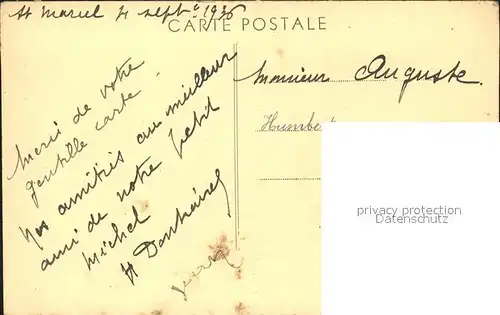 St Marcel 4 septbre 1936
CARTE POSTALE
Merci de votre
gentille carte.
Nos amitiés au meilleur
ami de notre petit
Michel
Monsieur Auguste
privacy protection
Datenschutz